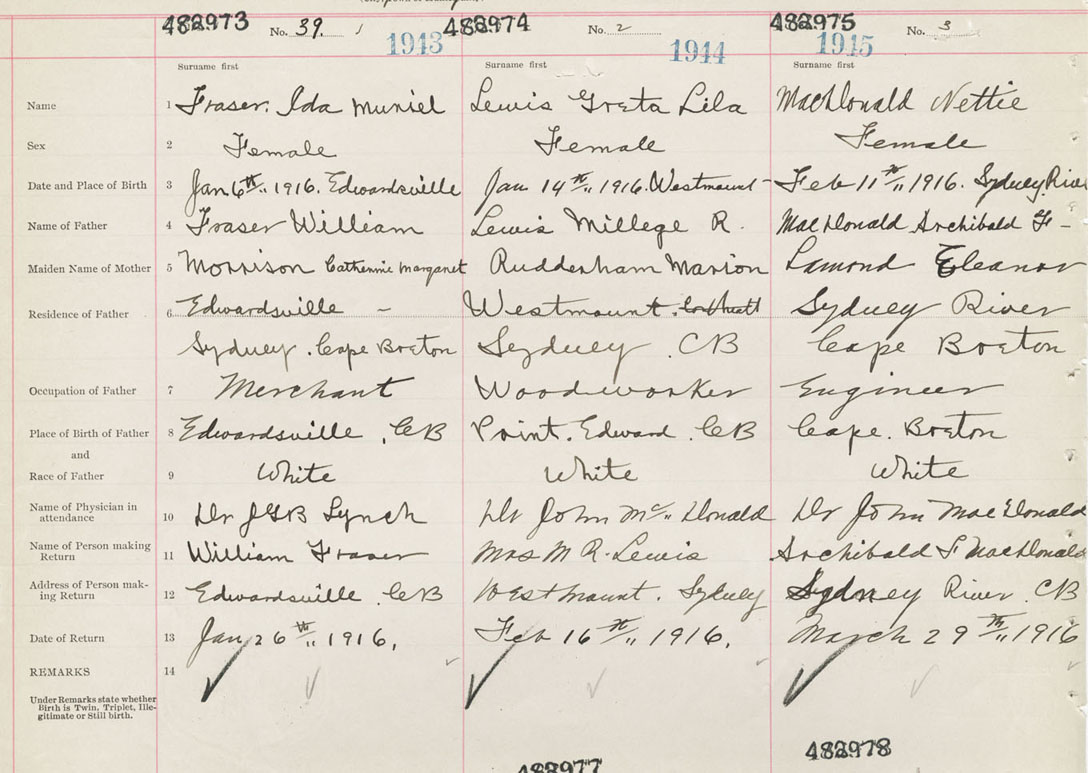 482973 No. 39. 482974 No. 2 482975 No. 3
1943 1944 1945
Surname first Surname first Surname first
Name 1 Fraser. Ida Muriel Lewis Greta Lila MacDonald Nettie
Sex 2 Female Female Female
Date and Place of Birth 3 Jan 6th,, 1916. Edwardsville Jan 14th,, 1916. Westmount - Feb 11th,, 1916. Sydney River
Name of Father 4 Fraser William Lewis Millege R. MacDonald Archibald F -
Maiden Name of Mother 5 Morrison Catherine Margaret Ruddenham Marion Lamond Eleanor
Residence of Father 6 Edwardsville - Westmount. Sydney River
Sydney. Cape Breton Sydney CB Cape Breton
Occupation of Father 7 Merchant Woodworker Engineer
Place of Birth of Father 8 Edwardsville, CB Point. Edward. CB Cape. Breton
and
Race of Father 9 White White White
Name of Physician in
attendance 10 Dr JGB Lynch Dr John Mc,, Donald Dr John MacDonald
Name of Person making
Return 11 William Fraser Mrs M R. Lewis Archibald F MacDonald
Address of Person mak-
ing Return 12 Edwardsville. CB Westmount. Sydney Sydney River CB
Date of Return 13 Jan 26th,, 1916. Feb 16th,, 1916. March 29th,, 1916
REMARKS 14
Under Remarks state whether
Birth is Twin, Triplet, Ille-
gitimate or Still birth.
482977 482978